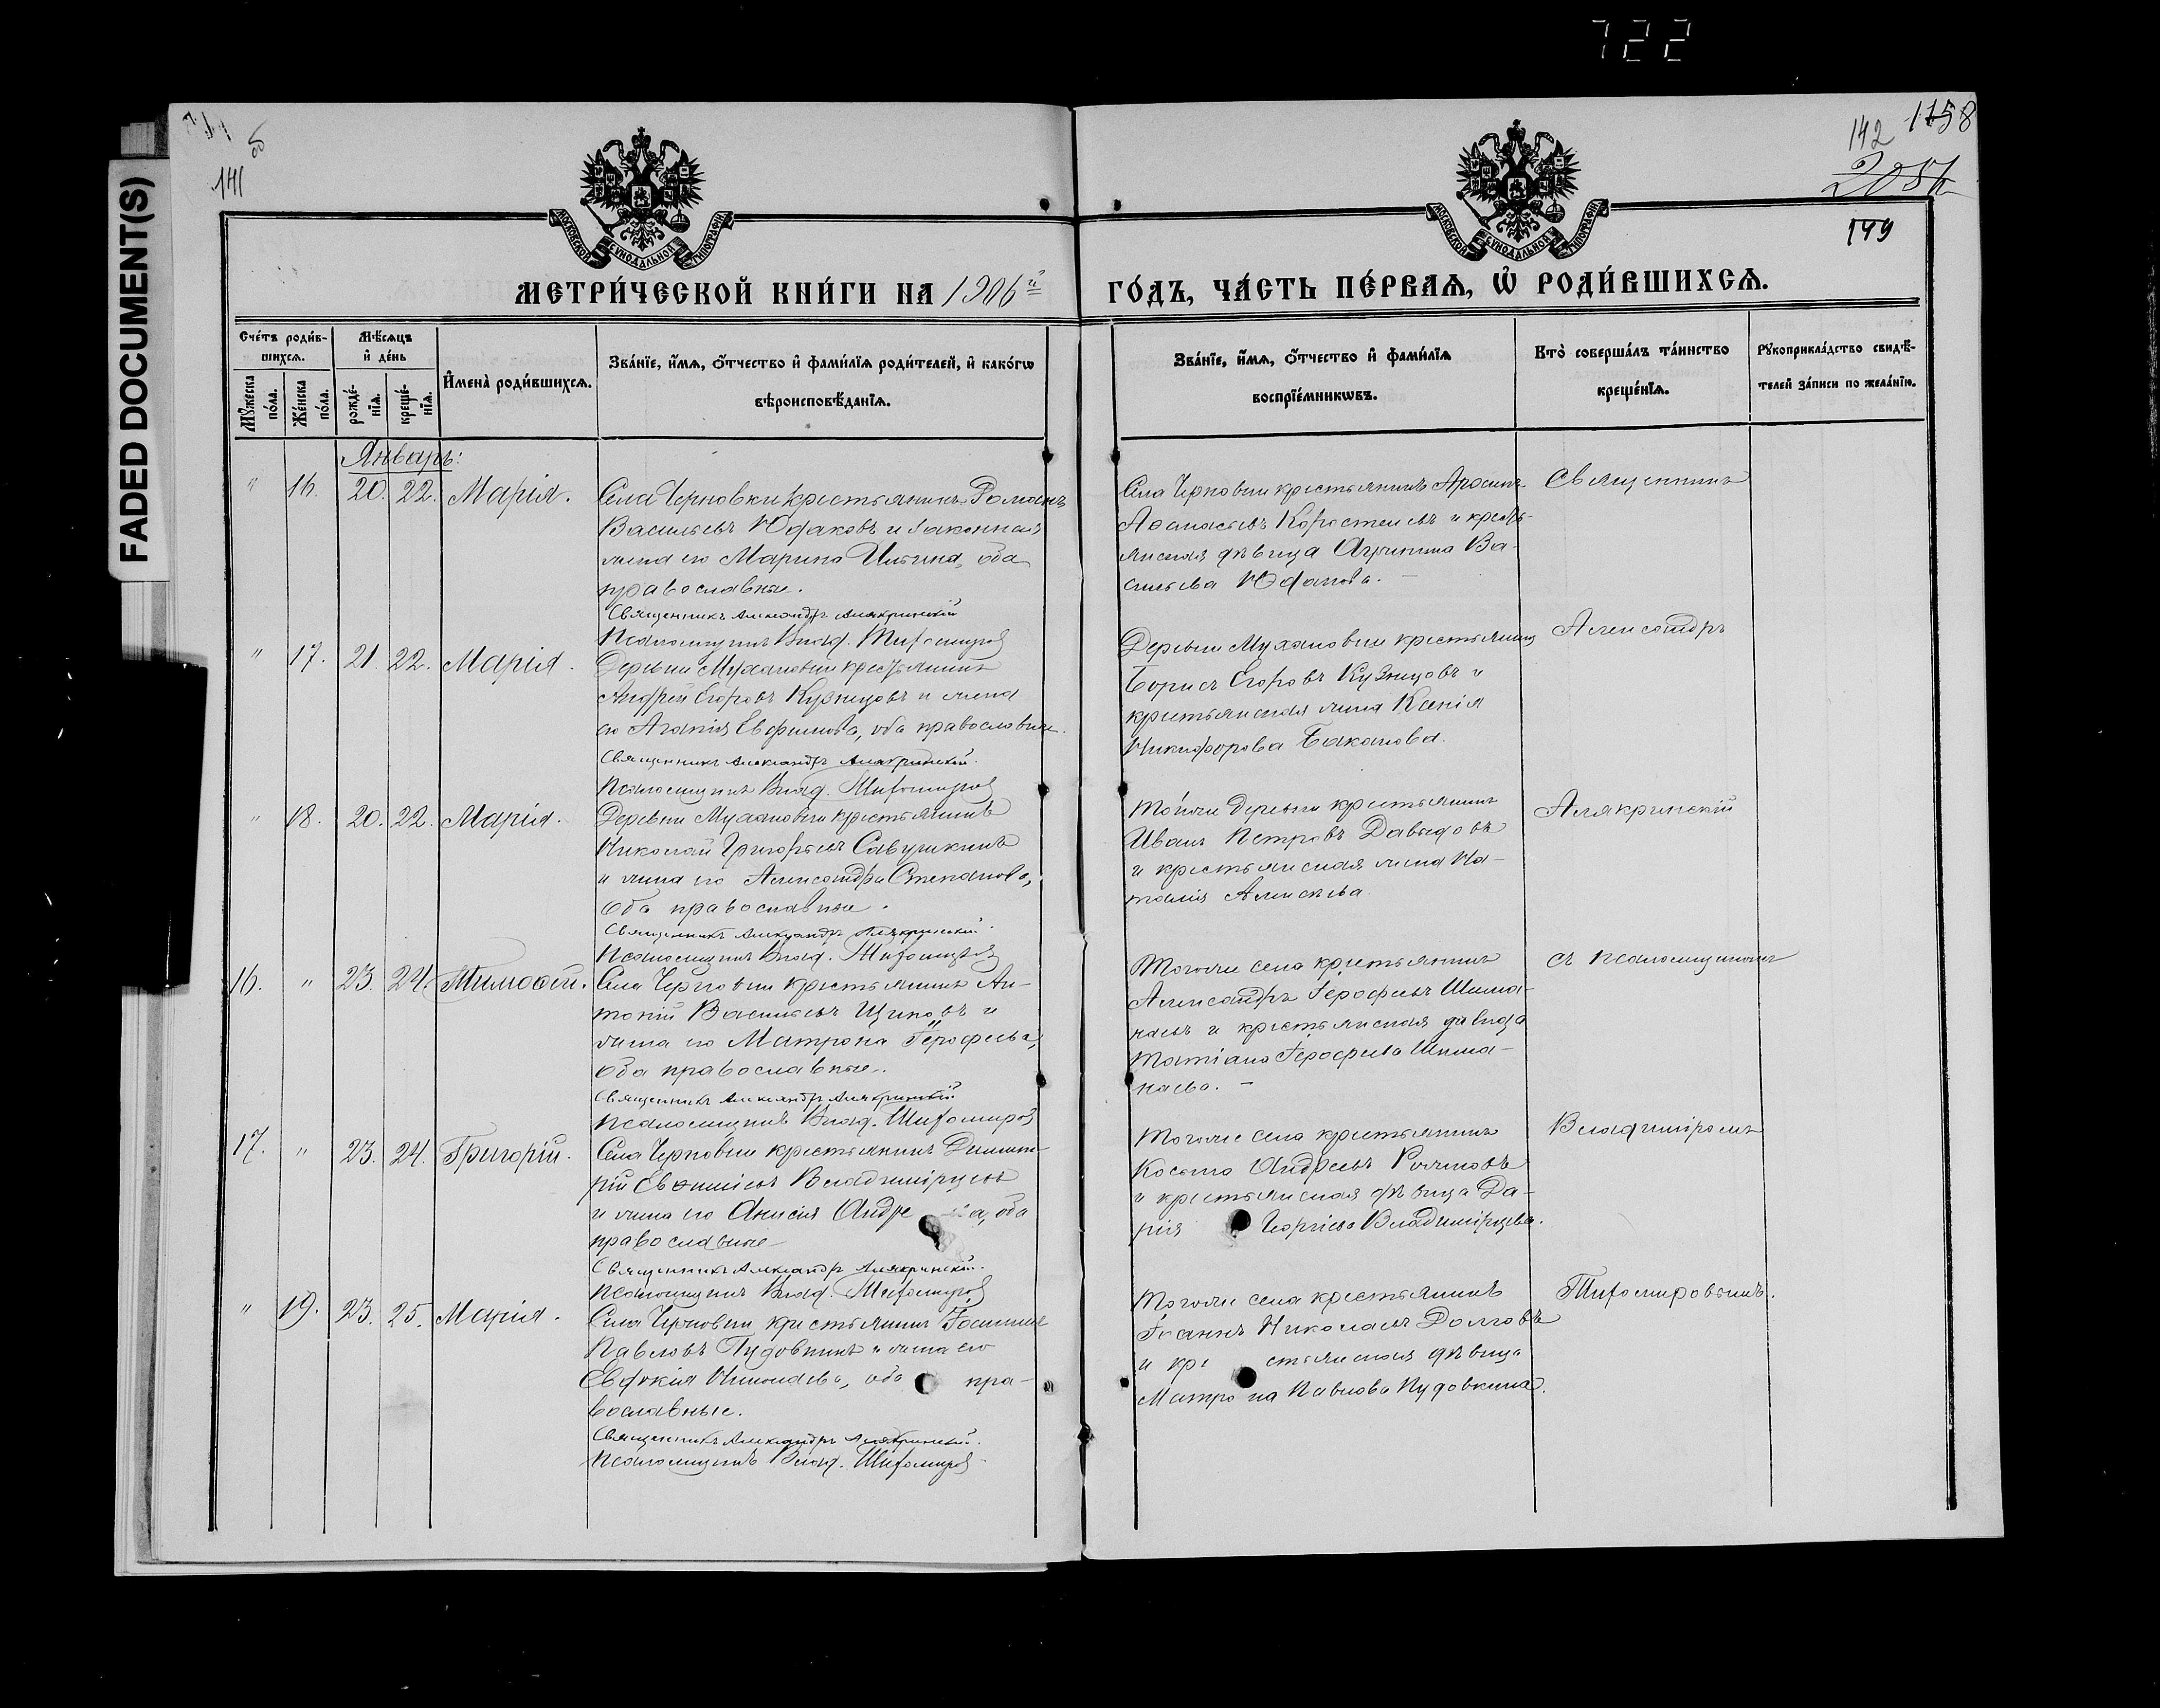 722
FADED DOCUMENT(S)
141
об
142
1158
149
МОСКОВСКОЙ СѴНОДАЛЬНОЙ ТИПОГРАФІИ
МОСКОВСКОЙ СѴНОДАЛЬНОЙ ТИПОГРАФІИ
МЕТРИ́ЧЕСКОЙ КНИ́ГИ НА 1906й
ГО́ДЪ, ЧА́СТЬ ПЕ́РВАѦ, Ѽ РОДИ́ВШИХСѦ.
Сче́тъ роди́в-
шихсѧ.
Мꙋ́жеска
по́ла.
Же́нска
по́ла.
Мѣ́сѧцъ
и҆ де́нь
рожде́-
нїѧ.
креще́-
нїѧ.
И҆мена̀ роди́вшихсѧ.
Зва́нїе, и҆́мѧ, ѻ҆́тчество и҆ фами́лїѧ роди́телей, и҆ како́гѡ
вѣроисповѣ́данїѧ.
Зва́нїе, и҆́мѧ, ѻ҆́тчество и҆ фами́лїѧ
воспрїе́мникѡвъ.
Кто̀ соверша́лъ та́инство
креще́нїѧ.
Рꙋкоприкла́дство свидѣ́-
телей за́писи по жела́нїю.
Январь:
" 16. 20. 22. Марія.
Села Черновки крестьянинъ Романъ
Васильевъ Юдаковъ и законная
жена его Марина Ильина, оба
православные.
Священникъ Александръ Алякринскій
Псаломщикъ Влад. Тихомировъ
Села Черновки крестьянинъ
Аѳанасьевъ Коростелевъ и кресть-
янская дѣвица Агрипина Ва-
сильева Юдакова. —
Священникъ
" 17. 21. 22. Марія.
Деревни Мухановки крестьянинъ
Андрей Егоровъ Кузнецовъ и жена
его Агапія Евфимова, оба православные.
Священникъ Александръ Алякринскій.
Псаломщикъ Влад. Тихомировъ
Деревни Мухановки крестьянинъ
Борисъ Егоровъ Кузнецовъ и
крестьянская жена Ксенія
Никифорова Баканова.
Александръ
" 18. 20. 22. Марія.
Деревни Мухановки крестьянинъ
Николай Григорьевъ Савушкинъ
и жена его Александра Степанова,
оба православные.
Священникъ Александръ Алякринскій.
Псаломщикъ Влад. Тихомировъ
Той же деревни крестьянинъ
Иванъ Петровъ Давыдовъ
и крестьянская жена На-
талія Алексѣева.
Алякринскій
16. " 23. 24. Тимоѳей.
Села Черновки крестьянинъ Ан-
тоній Васильевъ Щуковъ и
жена его Матрона Іерофеева,
оба православные.
Священникъ Александръ Алякринскій
Псаломщикъ Влад. Тихомировъ
Того же села крестьянинъ
Александръ Іерофеевъ Шима-
наевъ и крестьянская дѣвица
Татіана Іерофеева Шима-
наева. —
съ псаломщикомъ
17. " 23. 24. Григорій.
Села Черновки крестьянинъ Димит-
рій Евѳиміевъ Владимірцевъ
и жена его Анисія Андре ва, оба
православные
Священникъ Александръ Алякринскій.
Псаломщикъ Влад. Тихомировъ
Того же села крестьянинъ
Косьма Андреевъ
и крестьянская дѣвица Да-
рія Георгіева Владимірцева.
Владиміромъ
" 19. 23. 25. Марія.
Села Черновки крестьянинъ Іоаннъ
Павловъ Пудовкинъ и жена его
Евдокія Николаева, оба пра-
вославные.
Священникъ Александръ Алякринскій.
Псаломщикъ Влад. Тихомировъ
Того же села крестьянинъ
Іоаннъ Николаевъ Долговъ
и крестьянская дѣвица
Матрона Павлова Пудовкина.
Тихомировымъ.